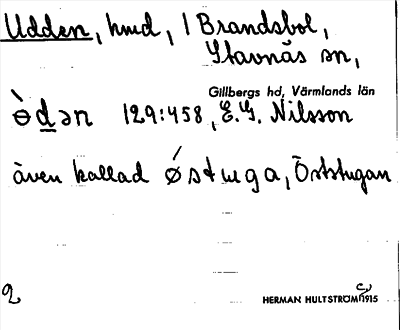 Udden, hmd, i Brandsbol,
Stavnäs sn,
Gillbergs hd, Värmlands län
ɵ̀dən 129:458, E. G. Nilsson
även kallad ǿstuga, Öststugan
2
HERMAN HULTSTRÖM 1915